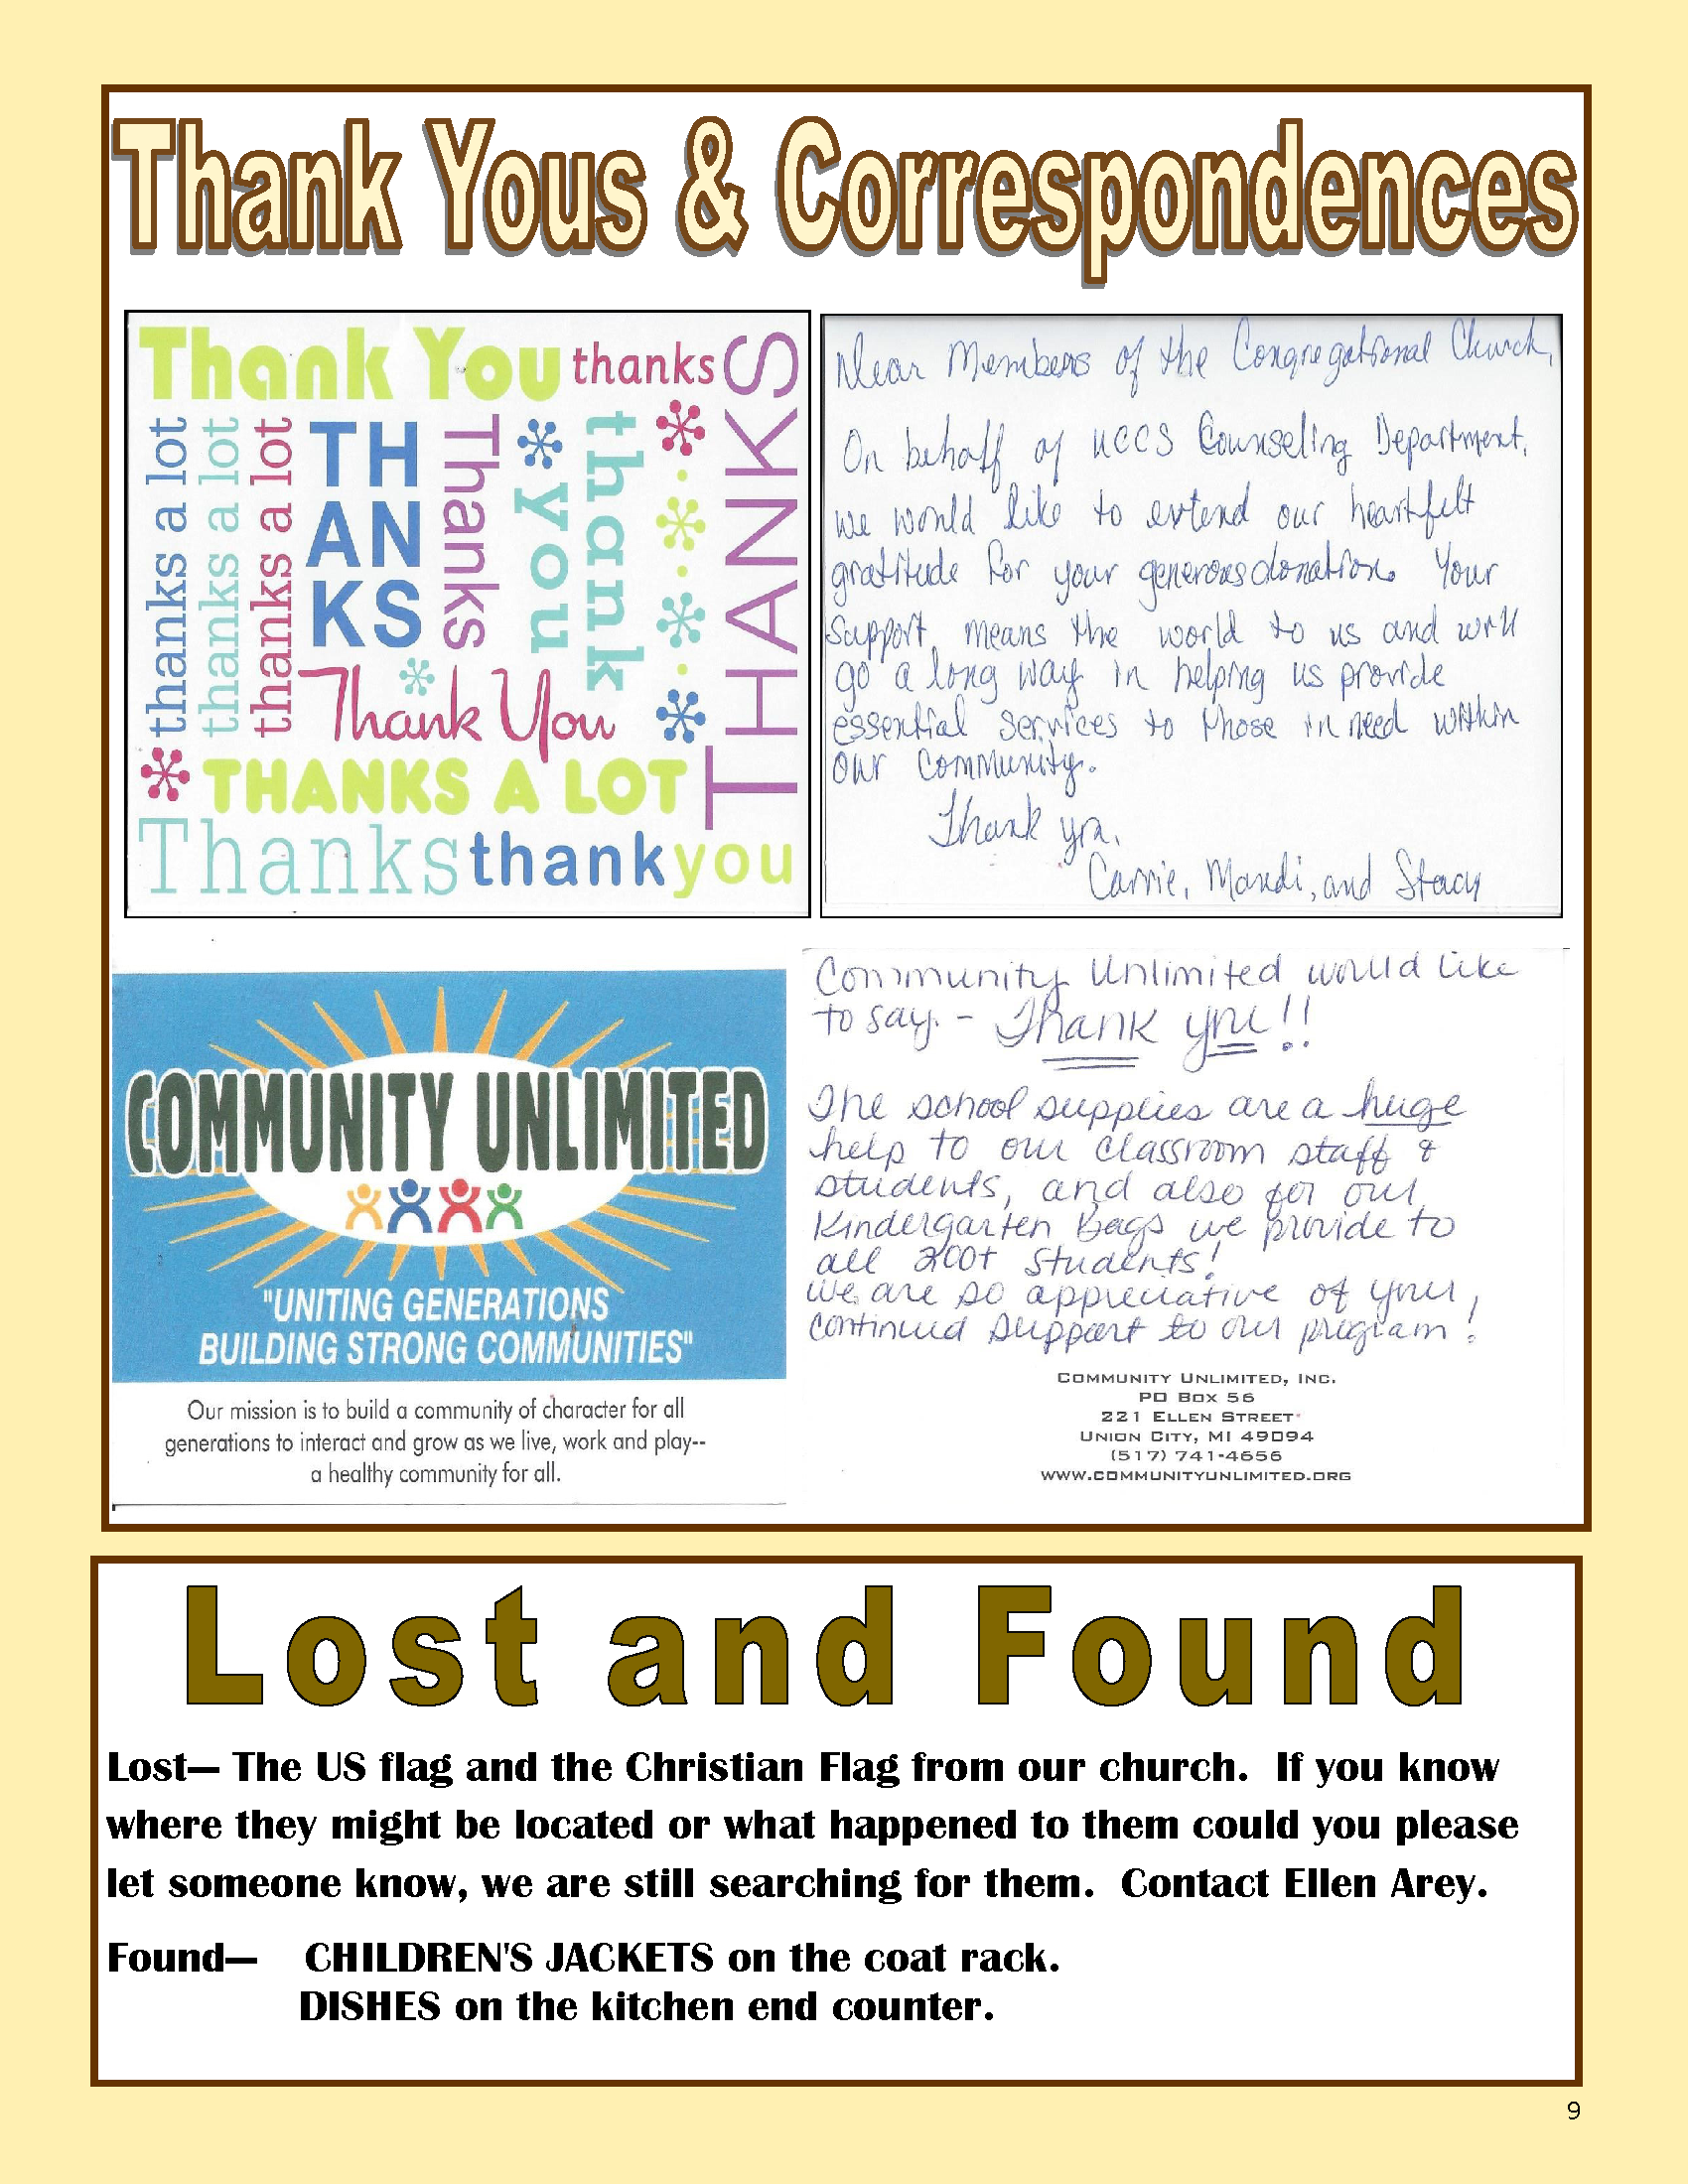 Thank Yous & Correspondences
Thank You thanks
THANKS
thanks a lot
thanks a lot
thanks a lot
TH
AN
KS
Thanks
you
thank
Thank You
THANKS A LOT
Thanks thank you
Dear Members of the Congregational Church,
On behalf of UCCS Counseling Department,
we would like to extend our heartfelt
gratitude for your generous donation. Your
support, means the world to us and will
go a long way in helping us provide
essential services to those in need within
our community.
Thank you,
Carrie, Mandi, and Stacy
COMMUNITY UNLIMITED
"UNITING GENERATIONS
BUILDING STRONG COMMUNITIES"
Our mission is to build a community of character for all
generations to interact and grow as we live, work and play--
a healthy community for all.
Community Unlimited would like
to say - Thank you!!
The school supplies are a huge
help to our classroom staff &
students, and also for our
Kindergarten Bags we provide to
all 200+ students!
We are so appreciative of your
continued support to our program!
COMMUNITY UNLIMITED, INC.
PO BOX 56
221 ELLEN STREET
UNION CITY, MI 49094
(517) 741-4656
WWW.COMMUNITYUNLIMITED.ORG
Lost and Found
Lost— The US flag and the Christian Flag from our church. If you know
where they might be located or what happened to them could you please
let someone know, we are still searching for them. Contact Ellen Arey.
Found— CHILDREN'S JACKETS on the coat rack.
DISHES on the kitchen end counter.
9